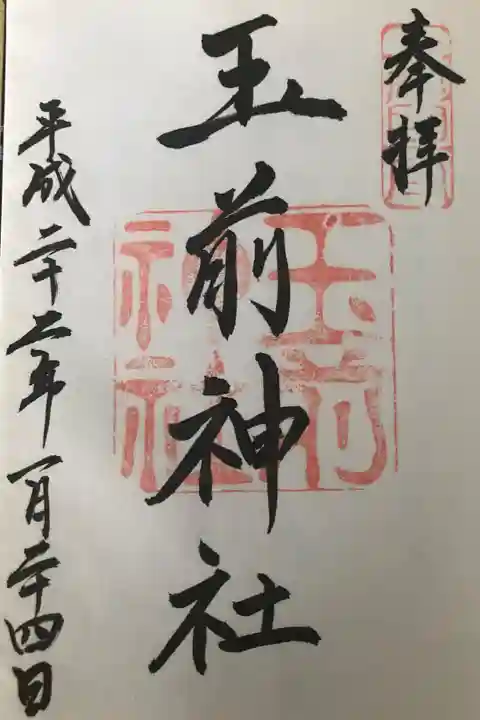 奉拝
玉前神社
玉前
神社
平成二十二年一月二十四日